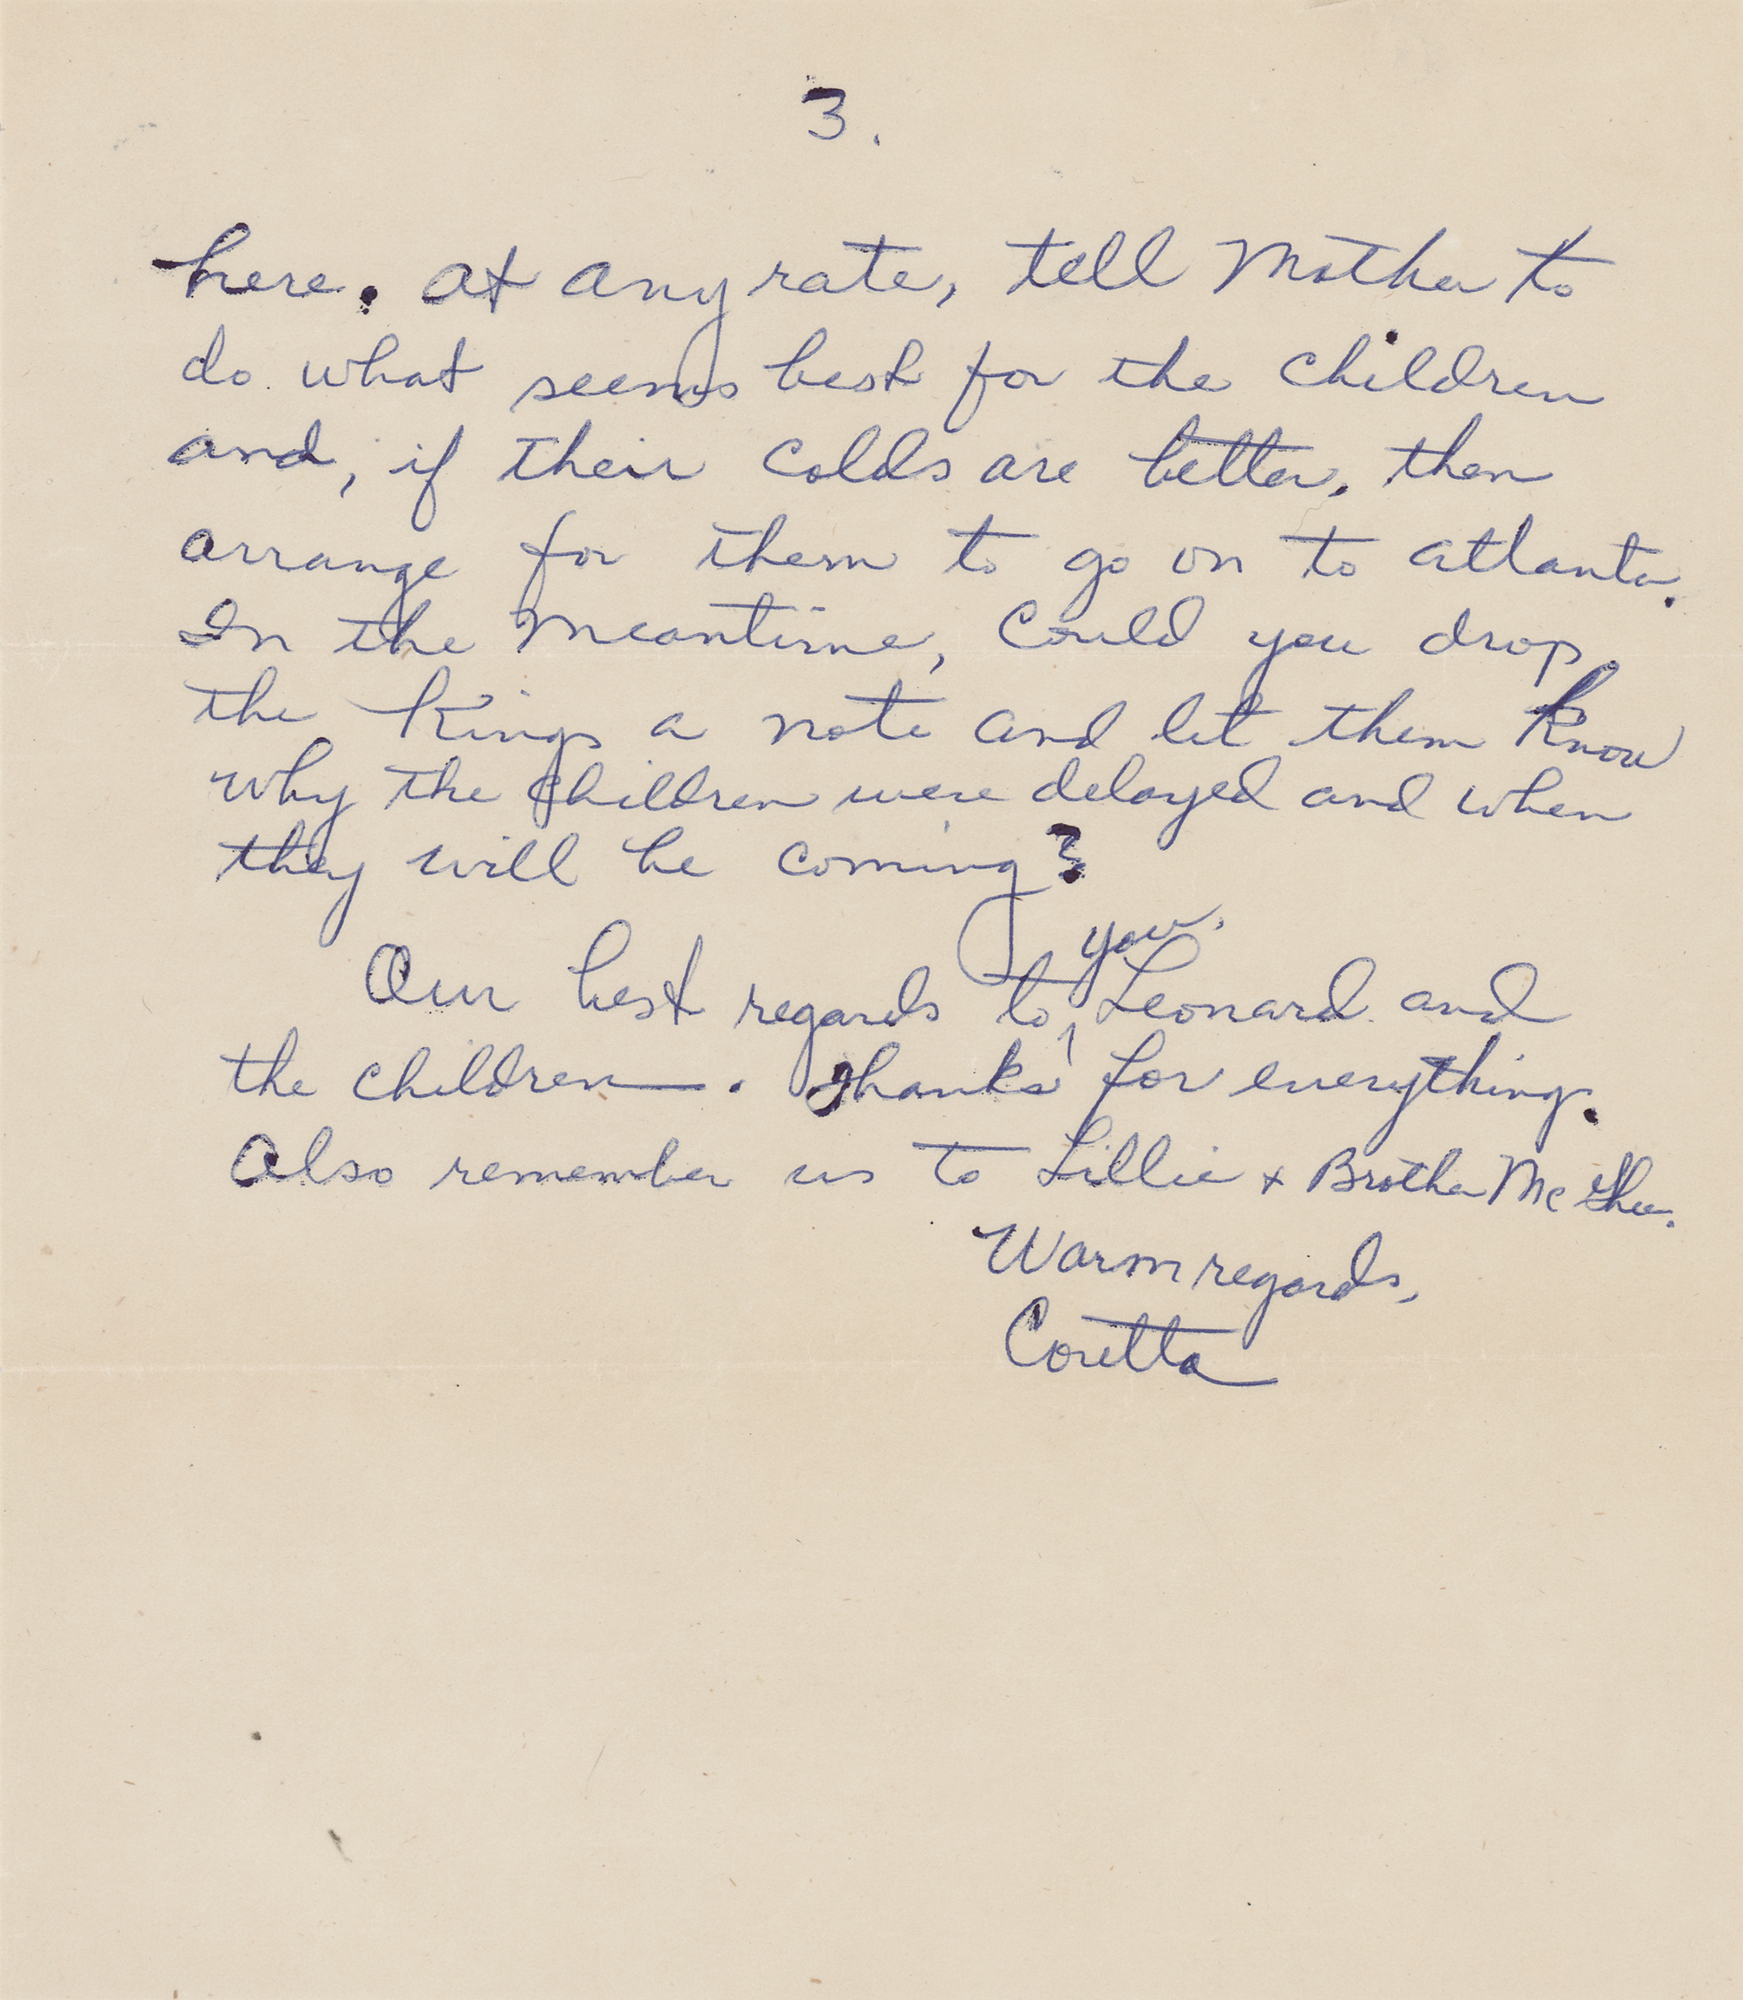 3.
here. At any rate, tell Mother to
do what seems best for the children
and, if their colds are better, then
arrange for them to go on to Atlanta.
In the meantime, could you drop
the Kings a note and let them know
why the children were delayed and when
they will be coming?
you,
Our best regards to, Leonard and
the children. Thanks for everything.
Also remember us to Lillie + Brother McGhee.
Warm regards,
Coretta